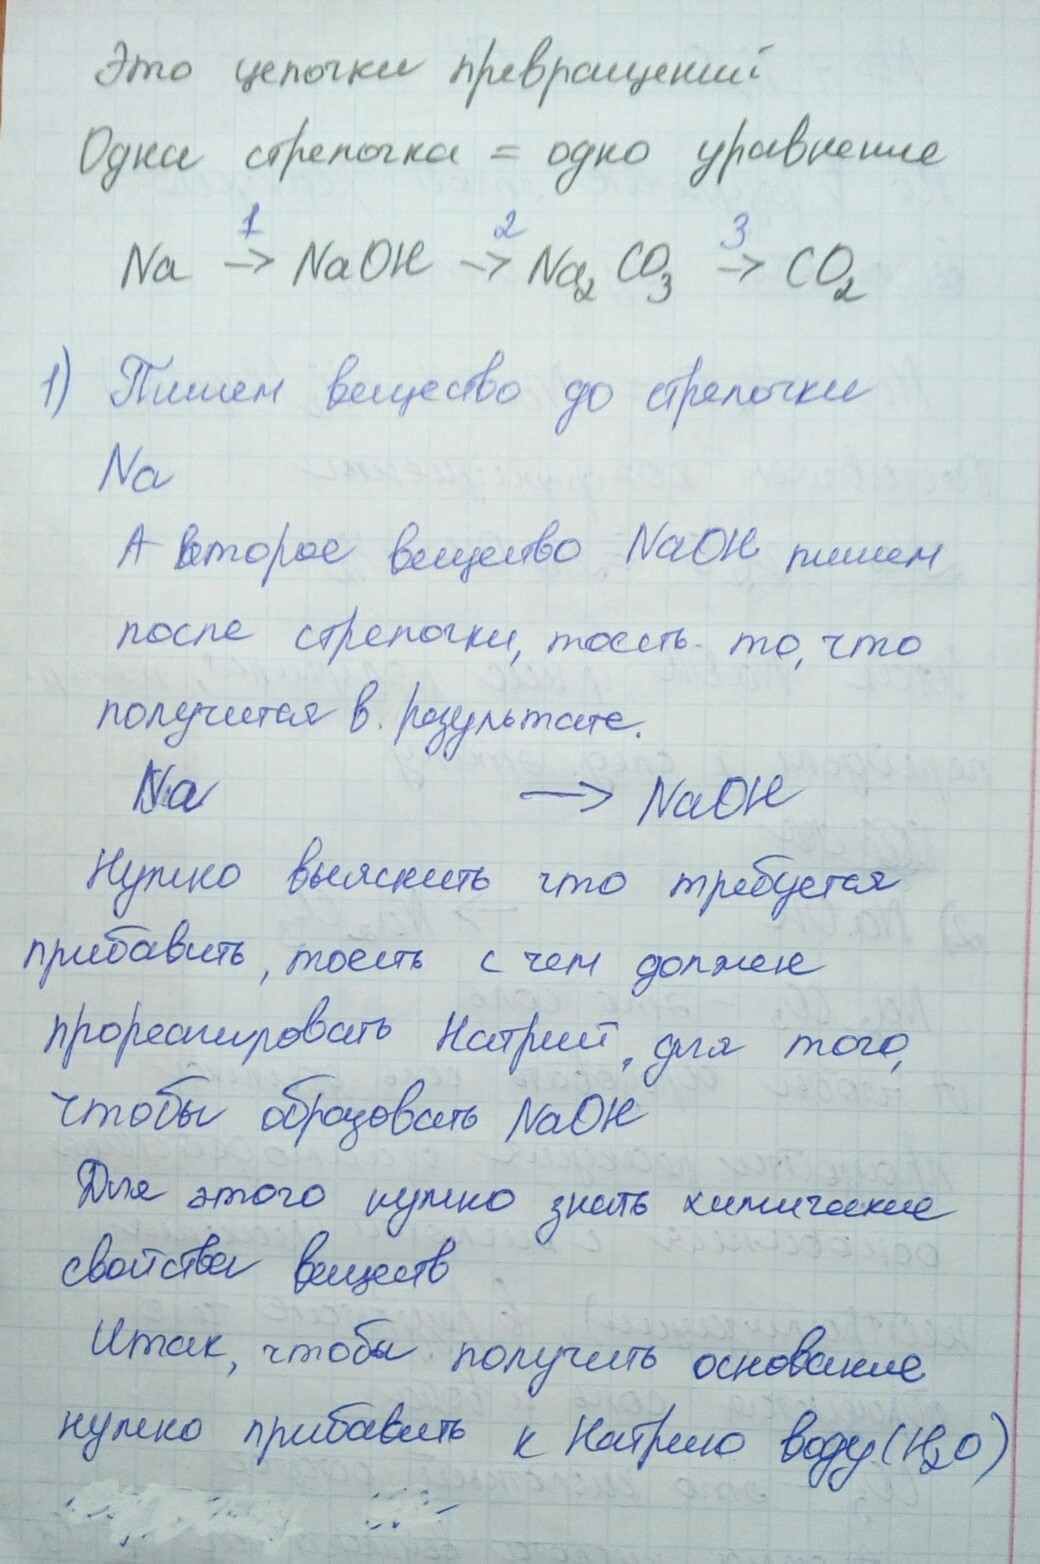 Это цепочки превращений
Одна стрелочка = одно уравнение
1 2 3
Na → NaOH → Na₂CO₃ → CO₂
1) Пишем вещество до стрелочки
Na
А второе вещество NaOH пишем
после стрелочки, тоесть то, что
получится в результате.
Na → NaOH
Нужно выяснить что требуется
прибавить, тоесть с чем должен
прореагировать Натрий, для того,
чтобы образовать NaOH
Для этого нужно знать химические
свойства веществ
Итак, чтобы получить основание
нужно прибавить к Натрию воду (H₂O)